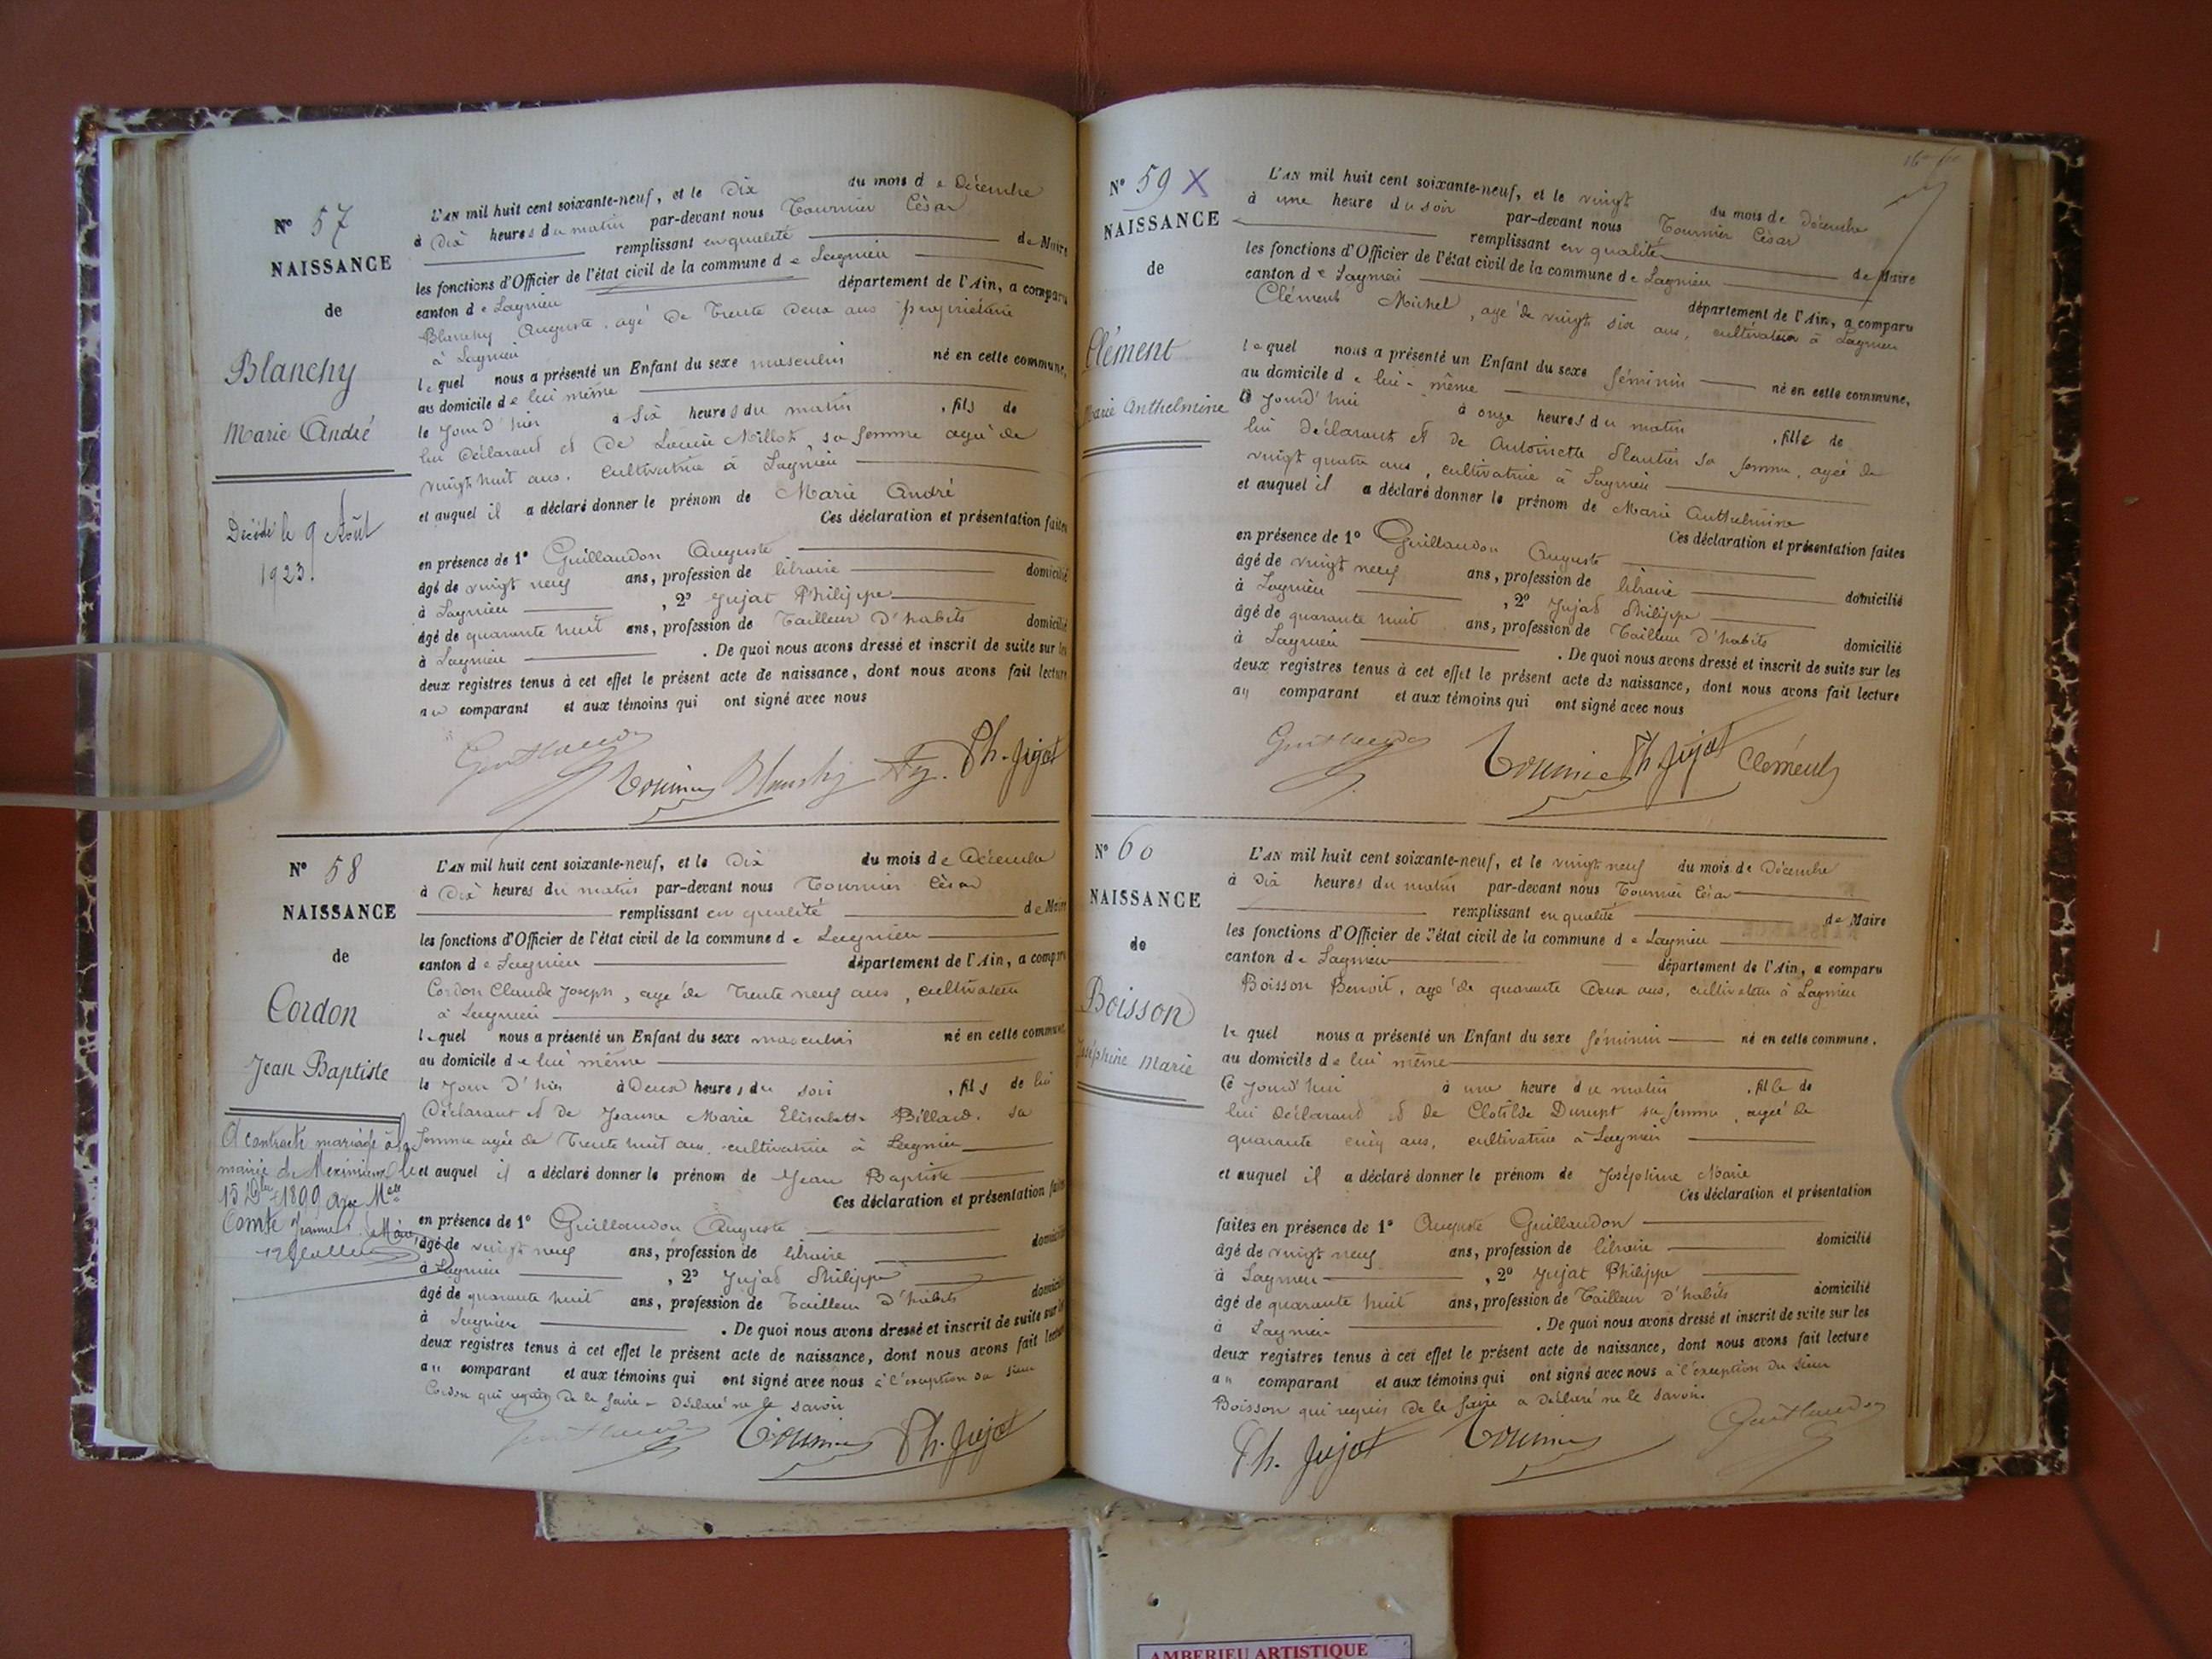 N° 57
NAISSANCE
de
Blanchy
Marie André
Décédé le 9 Août
1923.
L'AN mil huit cent soixante-neuf, et le Dix du mois de Décembre
à Dix heures du matin par-devant nous Tournier Cèsar
remplissant en qualité de Maire
les fonctions d'Officier de l'état civil de la commune de Lagnieu
canton de Lagnieu département de l'Ain, a comparu
Blanchy Auguste, agé de Trente Deux ans propriétaire
à Lagnieu
lequel nous a présenté un Enfant du sexe masculin né en cette commune,
au domicile de lui même
le jour d'hier à Six heures du matin , fils de
lui Déclarant et De Louise Millot, sa femme agée de
vingt huit ans, cultivatrice à Lagnieu
et auquel il a déclaré donner le prénom de Marie André
Ces déclaration et présentation faites
en présence de 1° Guillaudon Auguste
âgé de vingt neuf ans, profession de libraire domicilié
à Lagnieu , 2° Jujat Philippe
âgé de quarante huit ans, profession de Tailleur D'habits domicilié
à Lagnieu . De quoi nous avons dressé et inscrit de suite sur les
deux registres tenus à cet effet le présent acte de naissance, dont nous avons fait lecture
au comparant et aux témoins qui ont signé avec nous
Guillaudon
Tournier Blanchy Ph. Jujat
N° 58
NAISSANCE
de
Cordon
Jean Baptiste
A contracté mariage à la
mairie de Meximieux le
15 1899 avec Melle
Comte Jeanne
L'AN mil huit cent soixante-neuf, et le Dix du mois de Décembre
à Dix heures du matin par-devant nous Tournier Cèsar
remplissant en qualité de Maire
les fonctions d'Officier de l'état civil de la commune de Lagnieu
canton de Lagnieu département de l'Ain, a comparu
Cordon Claude Joseph, agé de Trente neuf ans, cultivateur
à Lagnieu
lequel nous a présenté un Enfant du sexe masculin né en cette commune,
au domicile de lui même
le jour D'hier à Deux heures du soir , fils de lui
Déclarant et de Jeanne Marie Elisabeth Billard, sa
femme agée de Trente huit ans, cultivatrice à Lagnieu
et auquel il a déclaré donner le prénom de Jean Baptiste
Ces déclaration et présentation faites
en présence de 1° Guillaudon Auguste
âgé de vingt neuf ans, profession de libraire domicilié
à Lagnieu , 2° Jujat Philippe
âgé de quarante huit ans, profession de Tailleur d'habits domicilié
à Lagnieu . De quoi nous avons dressé et inscrit de suite sur les
deux registres tenus à cet effet le présent acte de naissance, dont nous avons fait lecture
au comparant et aux témoins qui ont signé avec nous à l'exception du sieur
Cordon qui requis de le faire a déclaré ne le savoir
Guillaudon Tournier Ph. Jujat
N° 59 X
NAISSANCE
de
Clément
Marie Anthelmine
L'AN mil huit cent soixante-neuf, et le vingt du mois de Décembre
à une heure du soir par-devant nous Tournier Cèsar
remplissant en qualité de Maire
les fonctions d'Officier de l'état civil de la commune de Lagnieu
canton de Lagnieu département de l'Ain, a comparu
Clément Michel, agé de vingt six ans, cultivateur à Lagnieu
lequel nous a présenté un Enfant du sexe féminin né en cette commune,
au domicile de lui-même
ce jourd'hui à onze heures du matin , fille de
lui déclarant et de Antoinette sa femme, agée de
vingt quatre ans, cultivatrice à Lagnieu
et auquel il a déclaré donner le prénom de Marie Anthelmine
Ces déclaration et présentation faites
en présence de 1° Guillaudon Auguste
âgé de vingt neuf ans, profession de libraire domicilié
à Lagnieu , 2° Jujat Philippe
âgé de quarante huit ans, profession de Tailleur D'habits domicilié
à Lagnieu . De quoi nous avons dressé et inscrit de suite sur les
deux registres tenus à cet effet le présent acte de naissance, dont nous avons fait lecture
au comparant et aux témoins qui ont signé avec nous
Guillaudon Tournier Ph. Jujat Clément
N° 60
NAISSANCE
de
Boisson
Joséphine Marie
L'AN mil huit cent soixante-neuf, et le vingt neuf du mois de Décembre
à Dix heures du matin par-devant nous Tournier Cèsar
remplissant en qualité de Maire
les fonctions d'Officier de l'état civil de la commune de Lagnieu
canton de Lagnieu département de l'Ain, a comparu
Boisson Benoit, agé de quarante Deux ans, cultivateur à Lagnieu
lequel nous a présenté un Enfant du sexe féminin né en cette commune,
au domicile de lui même
ce jourd'hui à une heure du matin , fille de
lui déclarant et de Clotilde Durupt sa femme, agée de
quarante cinq ans, cultivatrice à Lagnieu
et auquel il a déclaré donner le prénom de Joséphine Marie
Ces déclaration et présentation
faites en présence de 1° Auguste Guillaudon
âgé de vingt neuf ans, profession de libraire domicilié
à Lagnieu , 2° Jujat Philippe
âgé de quarante huit ans, profession de Tailleur d'habits domicilié
à Lagnieu . De quoi nous avons dressé et inscrit de suite sur les
deux registres tenus à cet effet le présent acte de naissance, dont nous avons fait lecture
au comparant et aux témoins qui ont signé avec nous à l'exception du sieur
Boisson qui requis de le faire a déclaré ne le savoir.
Ph. Jujat Tournier Guillaudon
AMBERIEU ARTISTIQUE